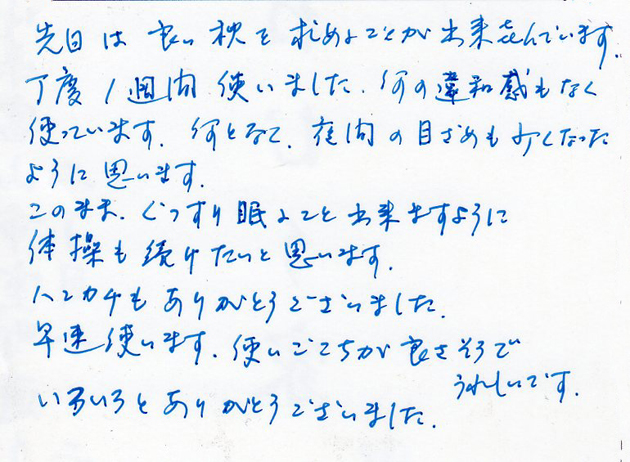 先日は良い枕を求めることが出来喜んでいます。
丁度1週間使いました。何の違和感もなく
使っています。何となく、夜間の目ざめも少くなった
ように思います。
このまま、ぐっすり眠ること出来ますように
体操も続けたいと思います。
ハンカチもありがとうございました。
早速使います。使いごこちが良さそうで
うれしいです。
いろいろとありがとうございました。